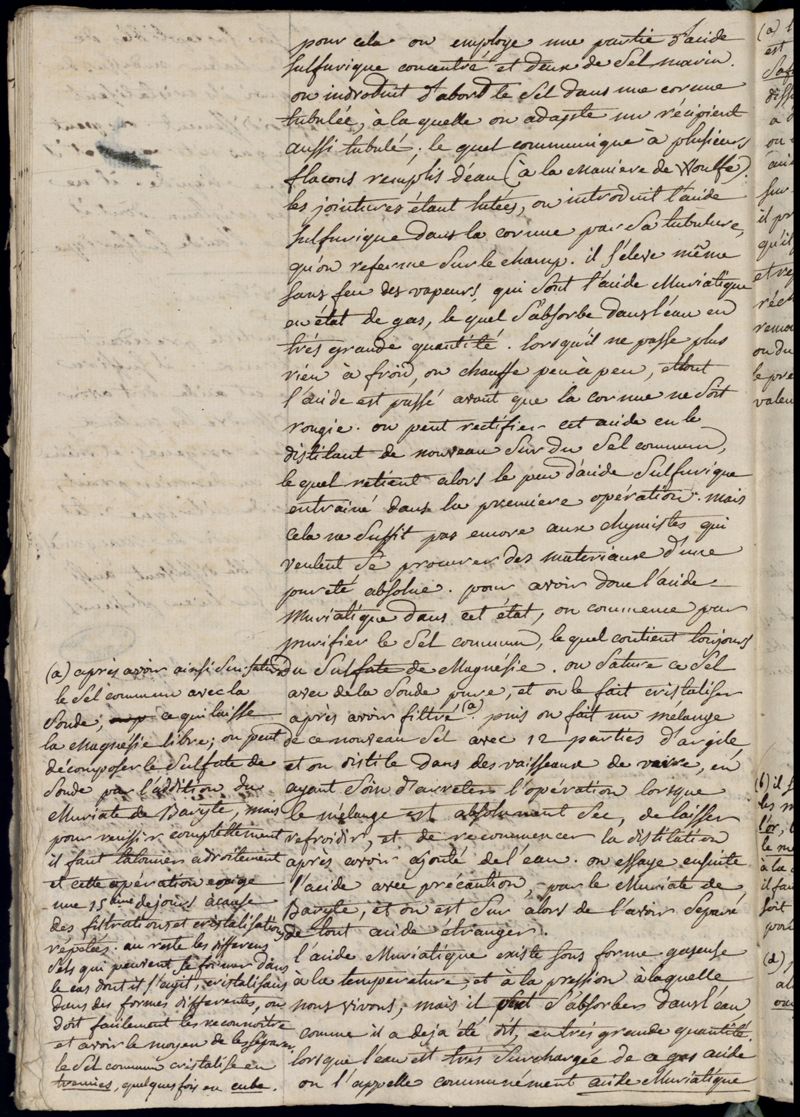 pour cela on employe une partie d'acide
sulfurique concentré et deux de Sel marin.
on introduit d'abord le Sel dans une cornue
tubulée, à la quelle on adapte un récipient
aussi tubulé. le quel communique à plusieurs
flacons remplis d'eau (à la Maniere de Woulfe).
les jointures étant lutées, on introduit l'acide
Sulfurique dans la cornue par sa tubulure,
qu'on referme sur le champ. il s'éleve même
sans feu des vapeurs, qui sont l'acide Muriatique
en état de gas, le quel s'absorbe dans l'eau en
trés grande quantité. lorsqu'il ne passe plus
rien à froid, on chauffe peu à peu, et tout
l'acide est passé avant que la cornue ne soit
rougie. on peut rectifier cet acide en le
distilant de nouveau sur du Sel commun,
le quel retient alors le peu d'acide Sulfurique
entrainé dans la premiere opération. mais
cela ne suffit pas encore aux chymistes qui
veulent se procurer des materiaux d'une
pureté absolue. pour avoir donc l'acide
Muriatique dans cet état, on commence par
purifier le Sel commun, le quel contient toujours
du Sulfate de Magnésie. on sature ce Sel
avec de la Soude pure, et on le fait cristaliser
après avoir filtré (a). puis on fait un mélange
de ce nouveau Sel avec 12 parties d'argile,
et on distile dans des vaisseaux de verre, en
ayant soin d'arreter l'opération lorsque
le mélange est absolument sec, de laisser
refroidir, et de recommencer la distilation
après avoir ajouté de l'eau. on essaye ensuite
l'acide avec précaution, par le Muriate de
Baryte, et on est sur alors de l'avoir séparé
de tout acide etranger.
l'acide Muriatique existe sous forme gaseuse
à la température, et à la pression à laquelle
nous vivons, mais il peut s'absorber dans l'eau
comme il a deja été dit, en trés grande quantité.
lorsque l'eau est trés surchargée de ce gas acide
on l'appelle communément acide Muriatique
(a) après avoir ainsi sur-saturé
le Sel commun avec la
Soude, ce qui laisse
la Magnésie libre; on peut
décomposer le Sulfate de
Soude par l'addition du
Muriate de Baryte, mais
pour reussir complettement
il faut talonner adroitement
et cette opération exige
une 15aine de jours à cause
des filtrations et cristalisations
répétées. au reste les differens
Sels qui peuvent se former dans
le cas dont il s'agit, cristalisans
dans des formes differentes, on
doit facilement les reconnoitre
et avoir le moyen de les séparer.
le Sel commun cristalise en
tremies, quelques fois en cube.